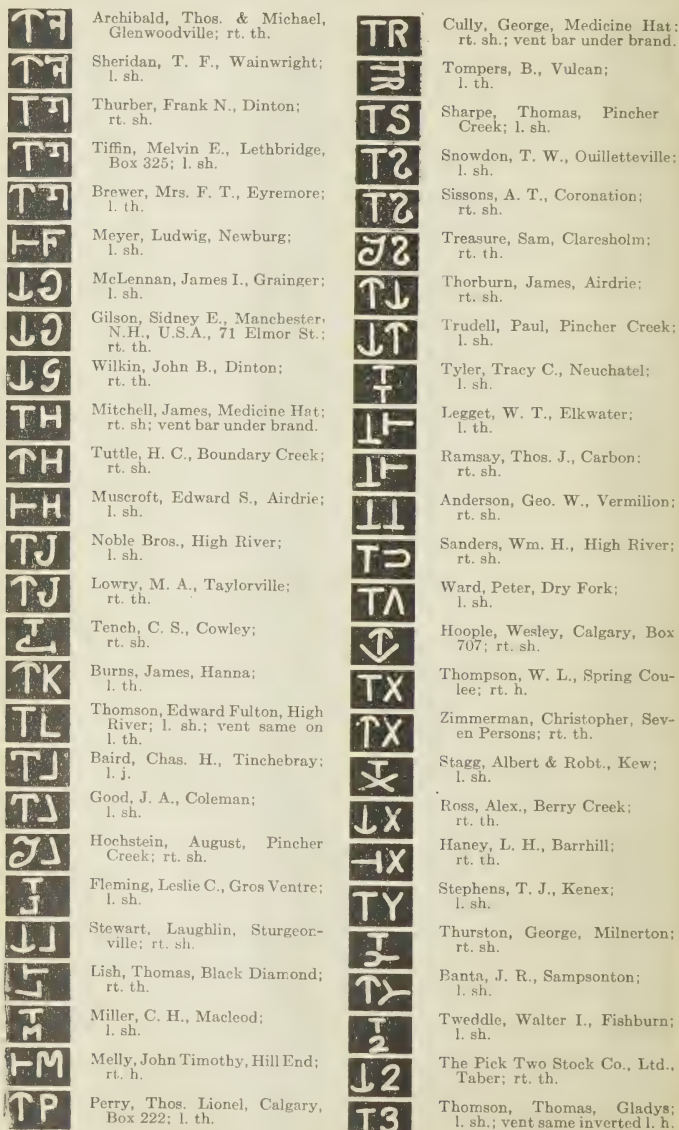 Archibald, Thos. & Michael,
Glenwoodville; rt. th.
Sheridan, T. F., Wainwright;
l. sh.
Thurber, Frank N., Dinton;
rt. sh.
Tiffin, Melvin E., Lethbridge,
Box 325; l. sh.
Brewer, Mrs. F. T., Eyremore;
l. th.
Meyer, Ludwig, Newburg;
l. sh.
McLennan, James I., Grainger;
l. sh.
Gilson, Sidney E., Manchester,
N.H., U.S.A., 71 Elmor St.;
rt. th.
Wilkin, John B., Dinton;
rt. th.
TH Mitchell, James, Medicine Hat;
rt. sh; vent bar under brand.
Tuttle, H. C., Boundary Creek;
rt. sh.
Muscroft, Edward S., Airdrie;
l. sh.
TJ Noble Bros., High River;
l. sh.
Lowry, M. A., Taylorville;
rt. th.
Tench, C. S., Cowley;
rt. sh.
Burns, James, Hanna;
l. th.
TL Thomson, Edward Fulton, High
River; l. sh.; vent same on
l. th.
Baird, Chas. H., Tinchebray;
l. j.
Good, J. A., Coleman;
l. sh.
Hochstein, August, Pincher
Creek; rt. sh.
Fleming, Leslie C., Gros Ventre;
l. sh.
Stewart, Laughlin, Sturgeon-
ville; rt. sh.
Lish, Thomas, Black Diamond;
rt. th.
Miller, C. H., Macleod;
l. sh.
Melly, John Timothy, Hill End;
rt. h.
Perry, Thos. Lionel, Calgary,
Box 222; l. th.
TR Cully, George, Medicine Hat;
rt. sh.; vent bar under brand.
Tompers, B., Vulcan;
l. th.
TS Sharpe, Thomas, Pincher
Creek; l. sh.
Snowdon, T. W., Ouilletteville;
l. sh.
Sissons, A. T., Coronation;
rt. sh.
Treasure, Sam, Claresholm;
rt. th.
Thorburn, James, Airdrie;
rt. sh.
Trudell, Paul, Pincher Creek;
l. sh.
Tyler, Tracy C., Neuchatel;
l. sh.
Legget, W. T., Elkwater;
l. th.
Ramsay, Thos. J., Carbon;
rt. sh.
Anderson, Geo. W., Vermilion;
rt. sh.
Sanders, Wm. H., High River;
rt. sh.
Ward, Peter, Dry Fork;
l. sh.
Hoople, Wesley, Calgary, Box
707; rt. sh.
TX Thompson, W. L., Spring Cou-
lee; rt. h.
Zimmerman, Christopher, Sev-
en Persons; rt. th.
Stagg, Albert & Robt., Kew;
l. sh.
Ross, Alex., Berry Creek;
rt. th.
Haney, L. H., Barrhill;
rt. th.
TY Stephens, T. J., Kenex;
l. sh.
Thurston, George, Milnerton;
rt. sh.
Banta, J. R., Sampsonton;
l. sh.
Tweddle, Walter I., Fishburn;
l. sh.
The Pick Two Stock Co., Ltd.,
Taber; rt. th.
T3 Thomson, Thomas, Gladys;
l. sh.; vent same inverted l. h.